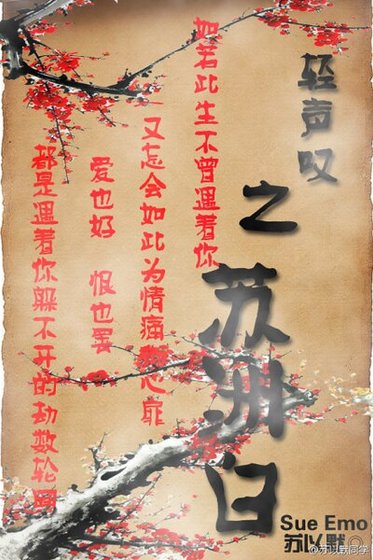 轻声叹
之
苏洲白
如若此生不曾遇着你
又怎会如此为情痛彻心扉
爱也好 恨也罢
都是遇着你躲不开的劫数轮回
Sue Emo
苏以默
@苏以默同学